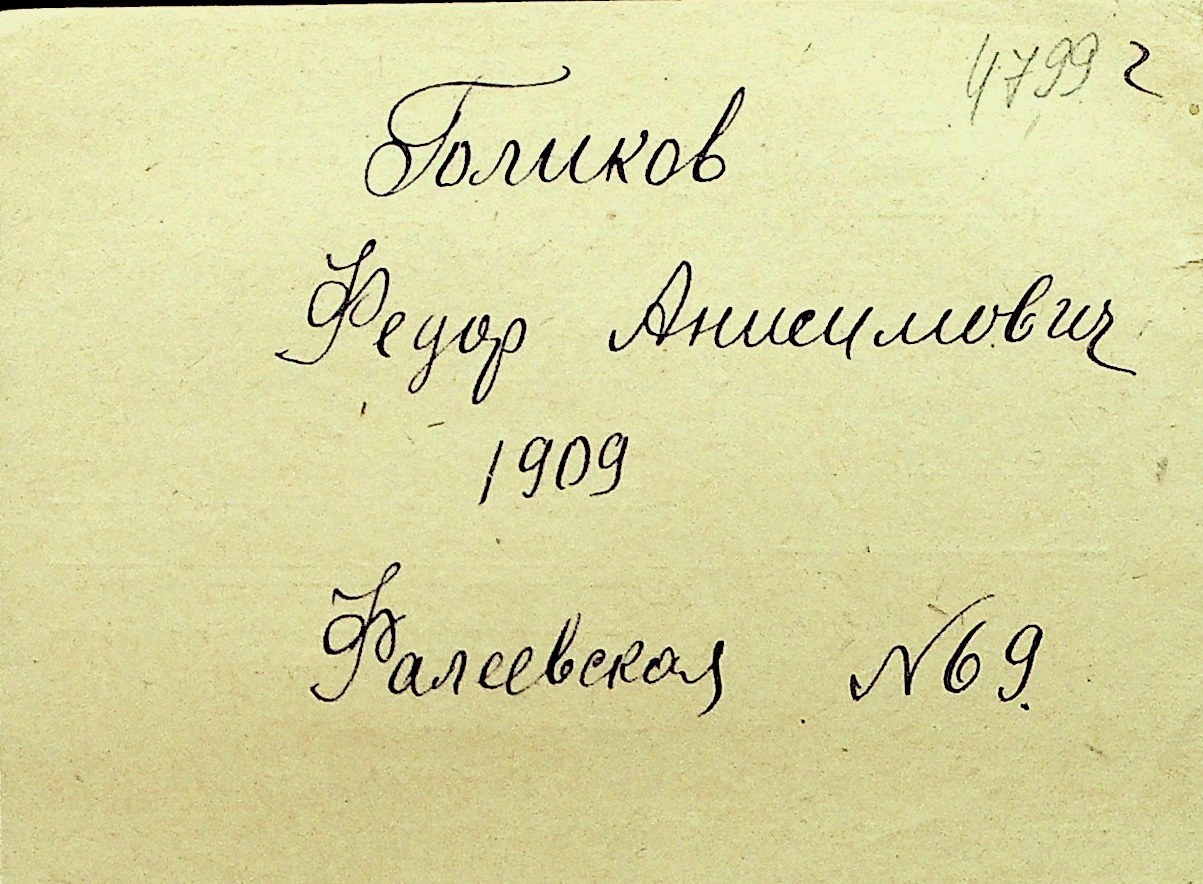 4799 г
Голиков
Федор Анисимович
1909
Фалеевская N69.